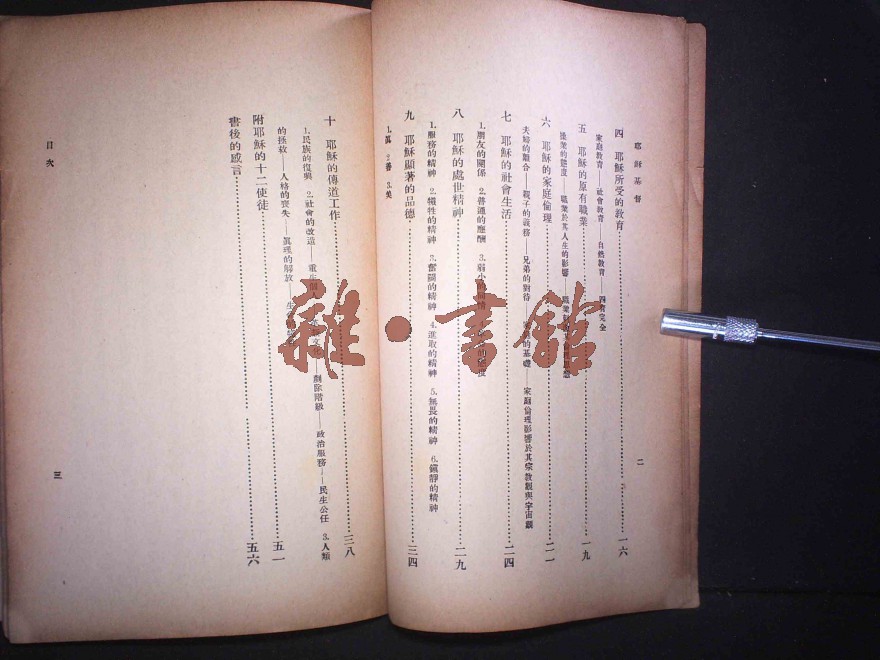 耶穌基督
二
四 耶穌所受的教育 一六
家庭教育——社會教育——自然教育——四育完全
五 耶穌的原有職業 一九
從業的態度——職業於其人生的影響——職業
六 耶穌的家庭倫理 二二
夫婦的離合——親子的義務——兄弟的對待——的基礎——家庭倫理影響於其宗教觀與宇宙觀
七 耶穌的社會生活 二四
1.朋友的關係 2.普通的應酬 3.弱小的
八 耶穌的處世精神 二九
1.服務的精神 2.犧牲的精神 3.奮鬪的精神 4.進取的精神 5.無畏的精神 6.鎭靜的精神
九 耶穌顯著的品德 三四
1.眞 2.善 3.美
十 耶穌的傳道工作 三八
1.民族的復興 2.社會的改造——重生個人——剷除階級——政治服務——民生公任 3.人類
的拯救——人格的喪失——眞理的解放
附耶穌的十二使徒 五一
書後的感言 五六
目次
三
雜·書館